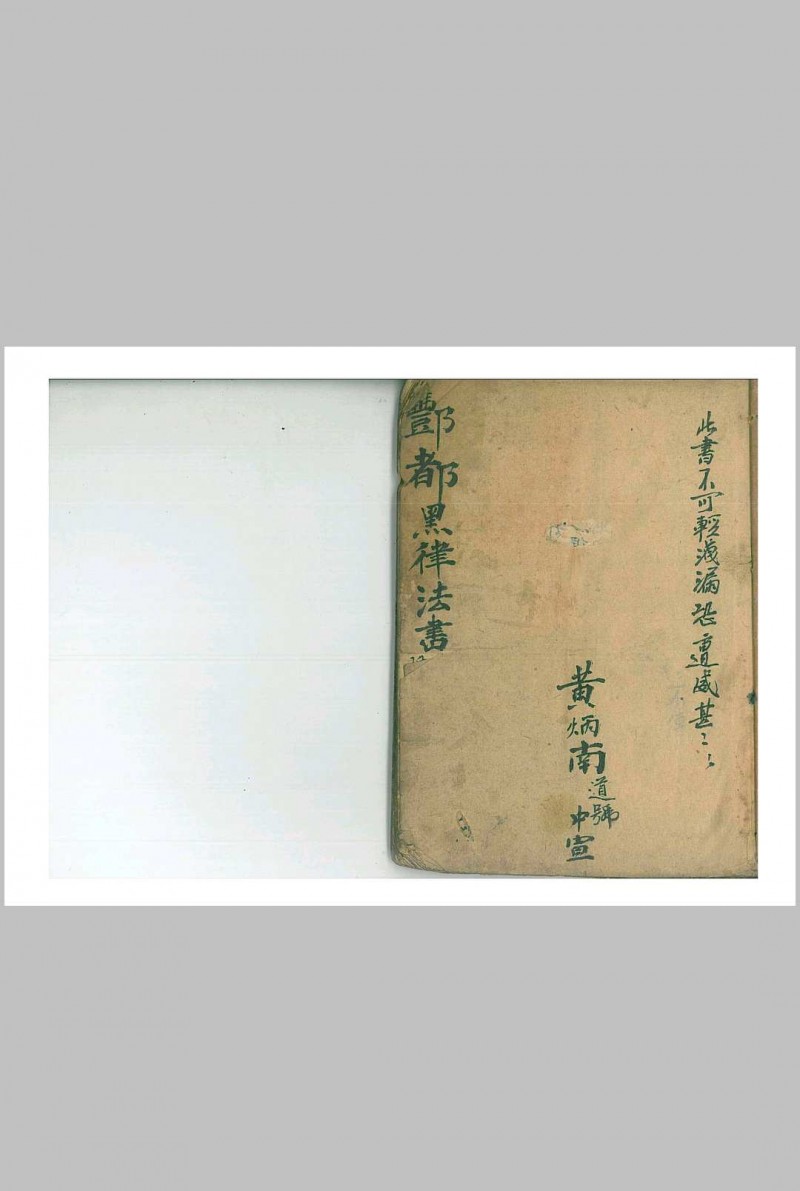 此書不可輕洩漏恐遭威甚〻
黄炳南道號
冲宣
酆都黑律法書